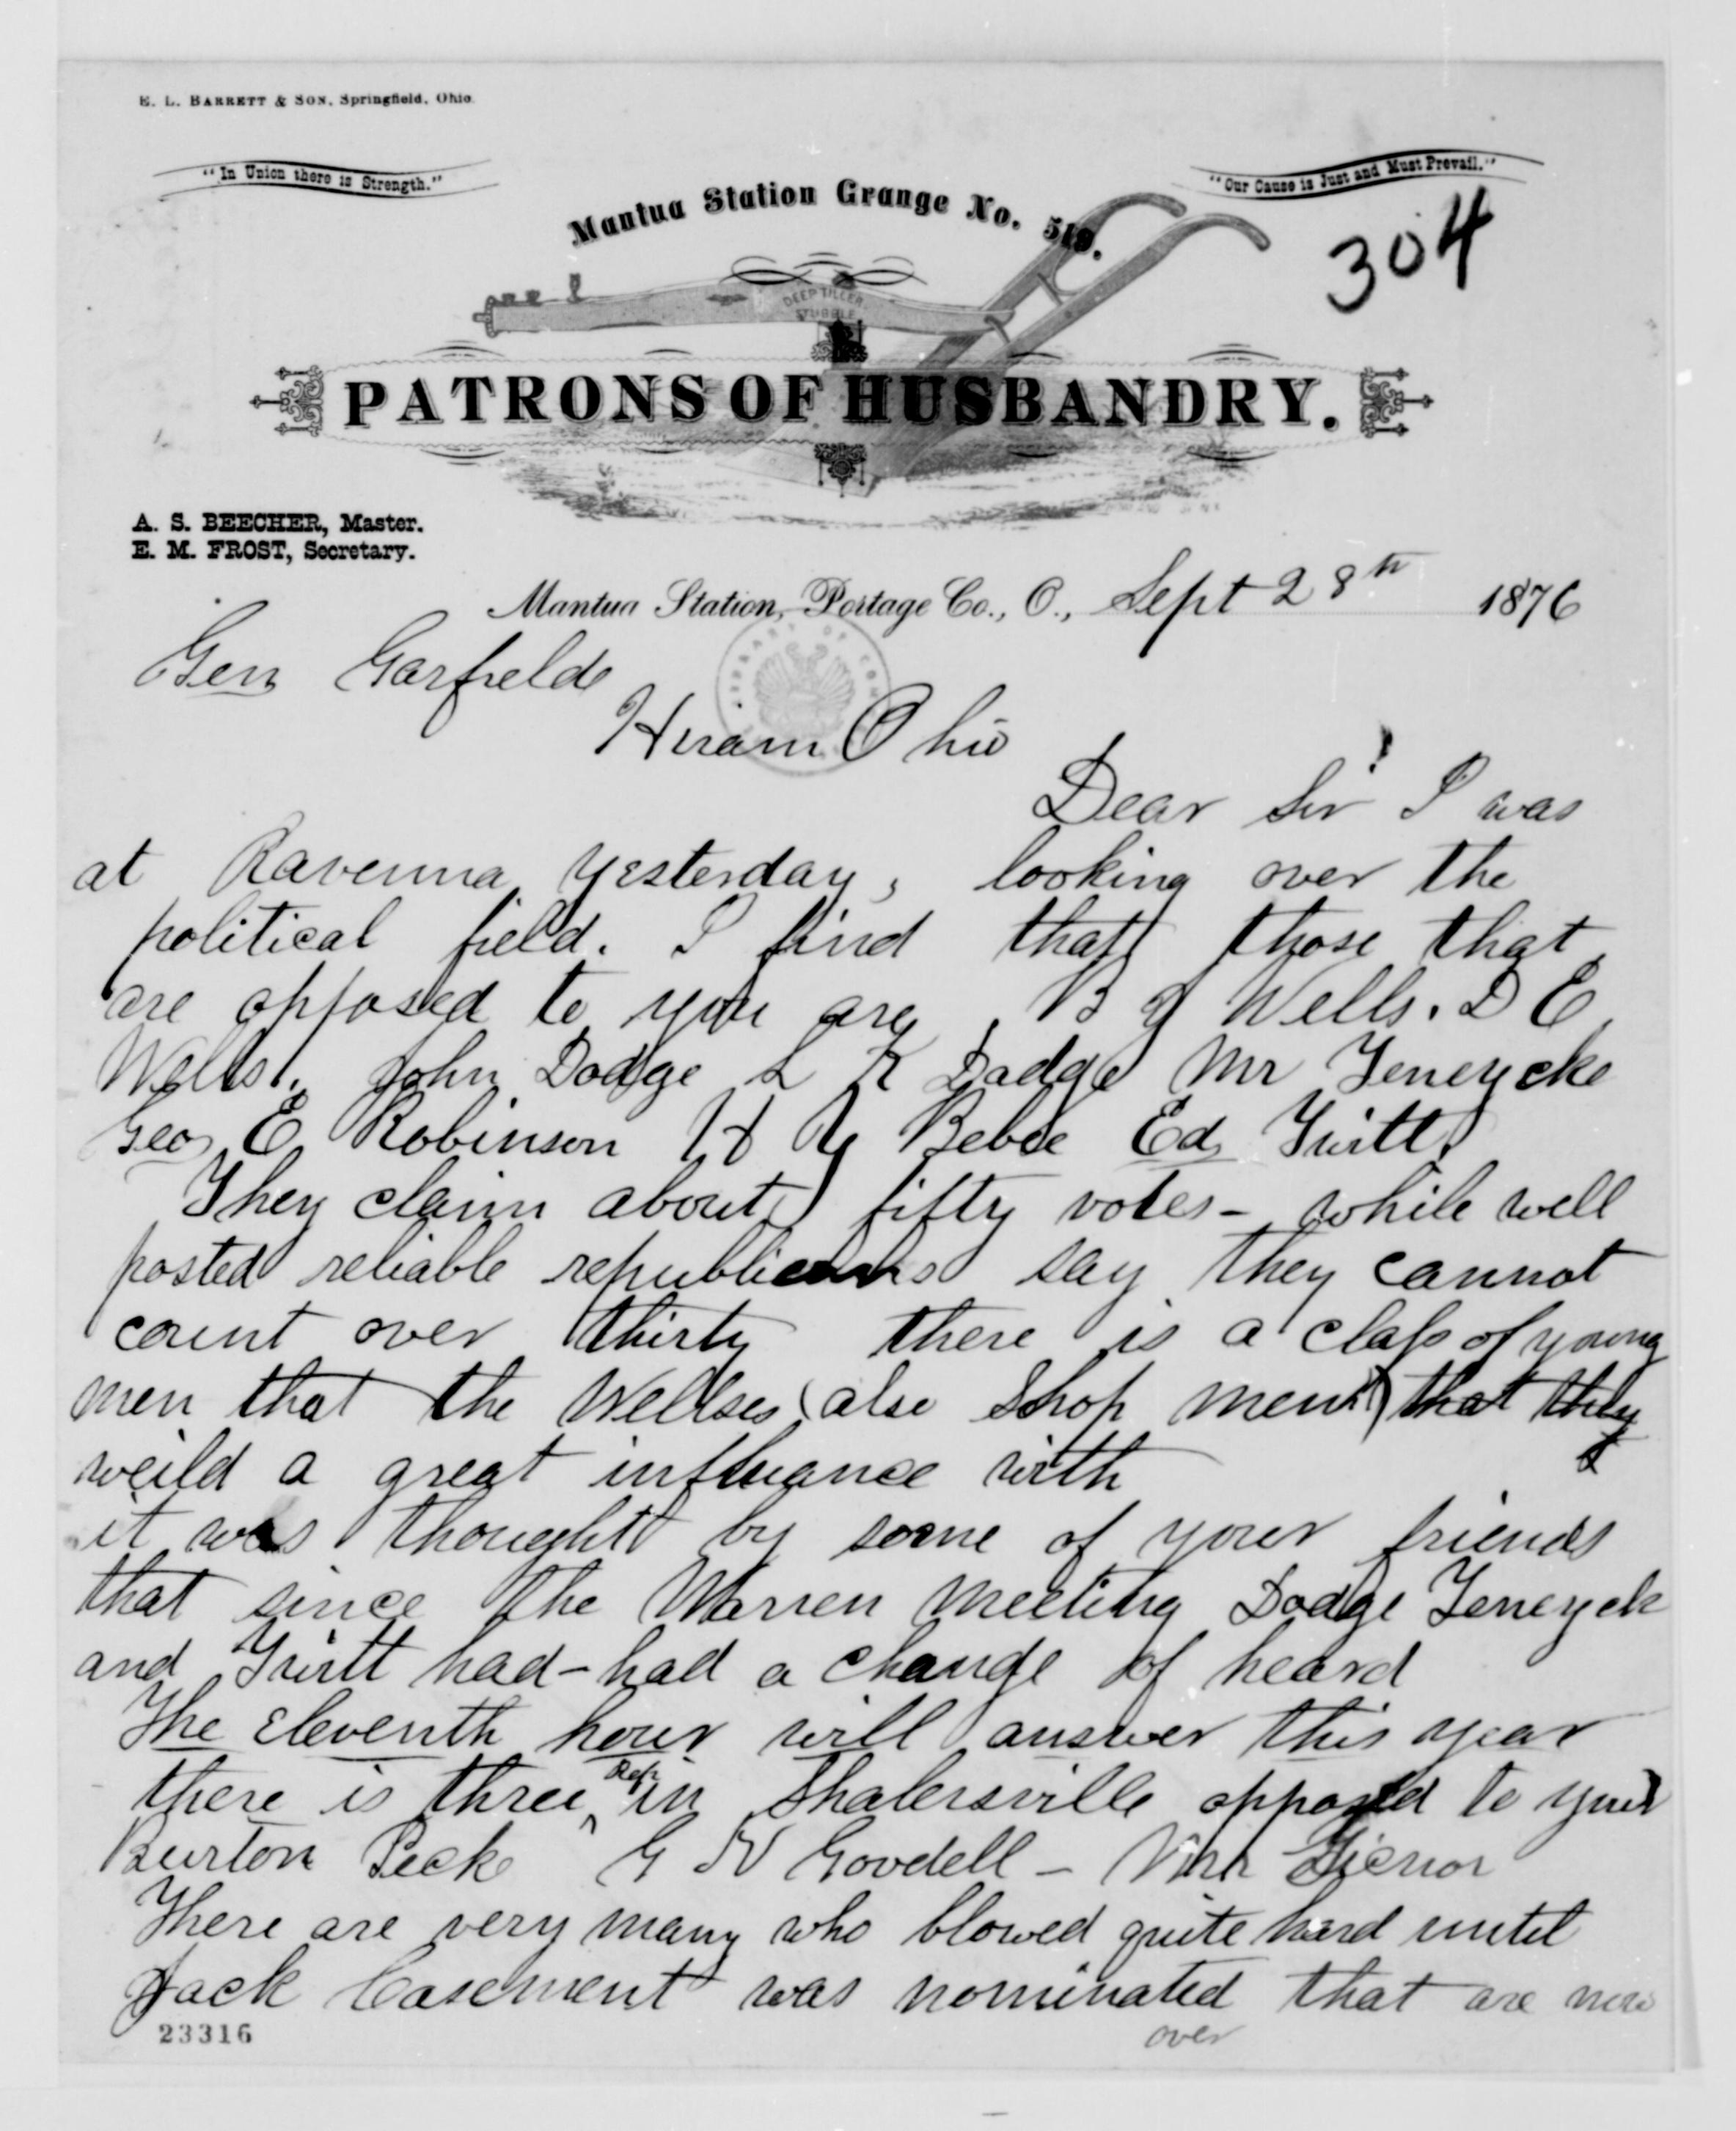 E. L. BARRETT & SON, Springfield, Ohio.
"In Union there is Strength."
"Our Cause is Just and Must Prevail."
Mantua Station Grange No. 519.
304
DEEP TILLER
STUBBLE
PATRONS OF HUSBANDRY.
A. S. BEECHER, Master.
E. M. FROST, Secretary.
Mantua Station, Portage Co., O., Sept 28th 1876
Gen Garfield
Hiram Ohio
Dear Sir I was
at Ravenna yesterday, looking over the
political field. I find that those that
are opposed to you are, B Wells. D E
Wells. John Dodge L R Dodge Mr Teneycke
Geo E Robinson H Y Bebee Ed Twitt
They claim about fifty votes - while well
posted reliable republicans say they cannot
count over thirty there is a class of young
men that the Wellses (also shop men) that they
weild a great influance with
it was thought by some of your friends
that since the Warren Meeting Dodge Teneyck
and Twitt had-had a change of heard
The eleventh hour will answer this year
there is three Rep in Shalersville opposed to you
Burton Peck G N Goodell -
There are very many who blowed quite hard until
Jack Casement was nominated that are now
over
23316